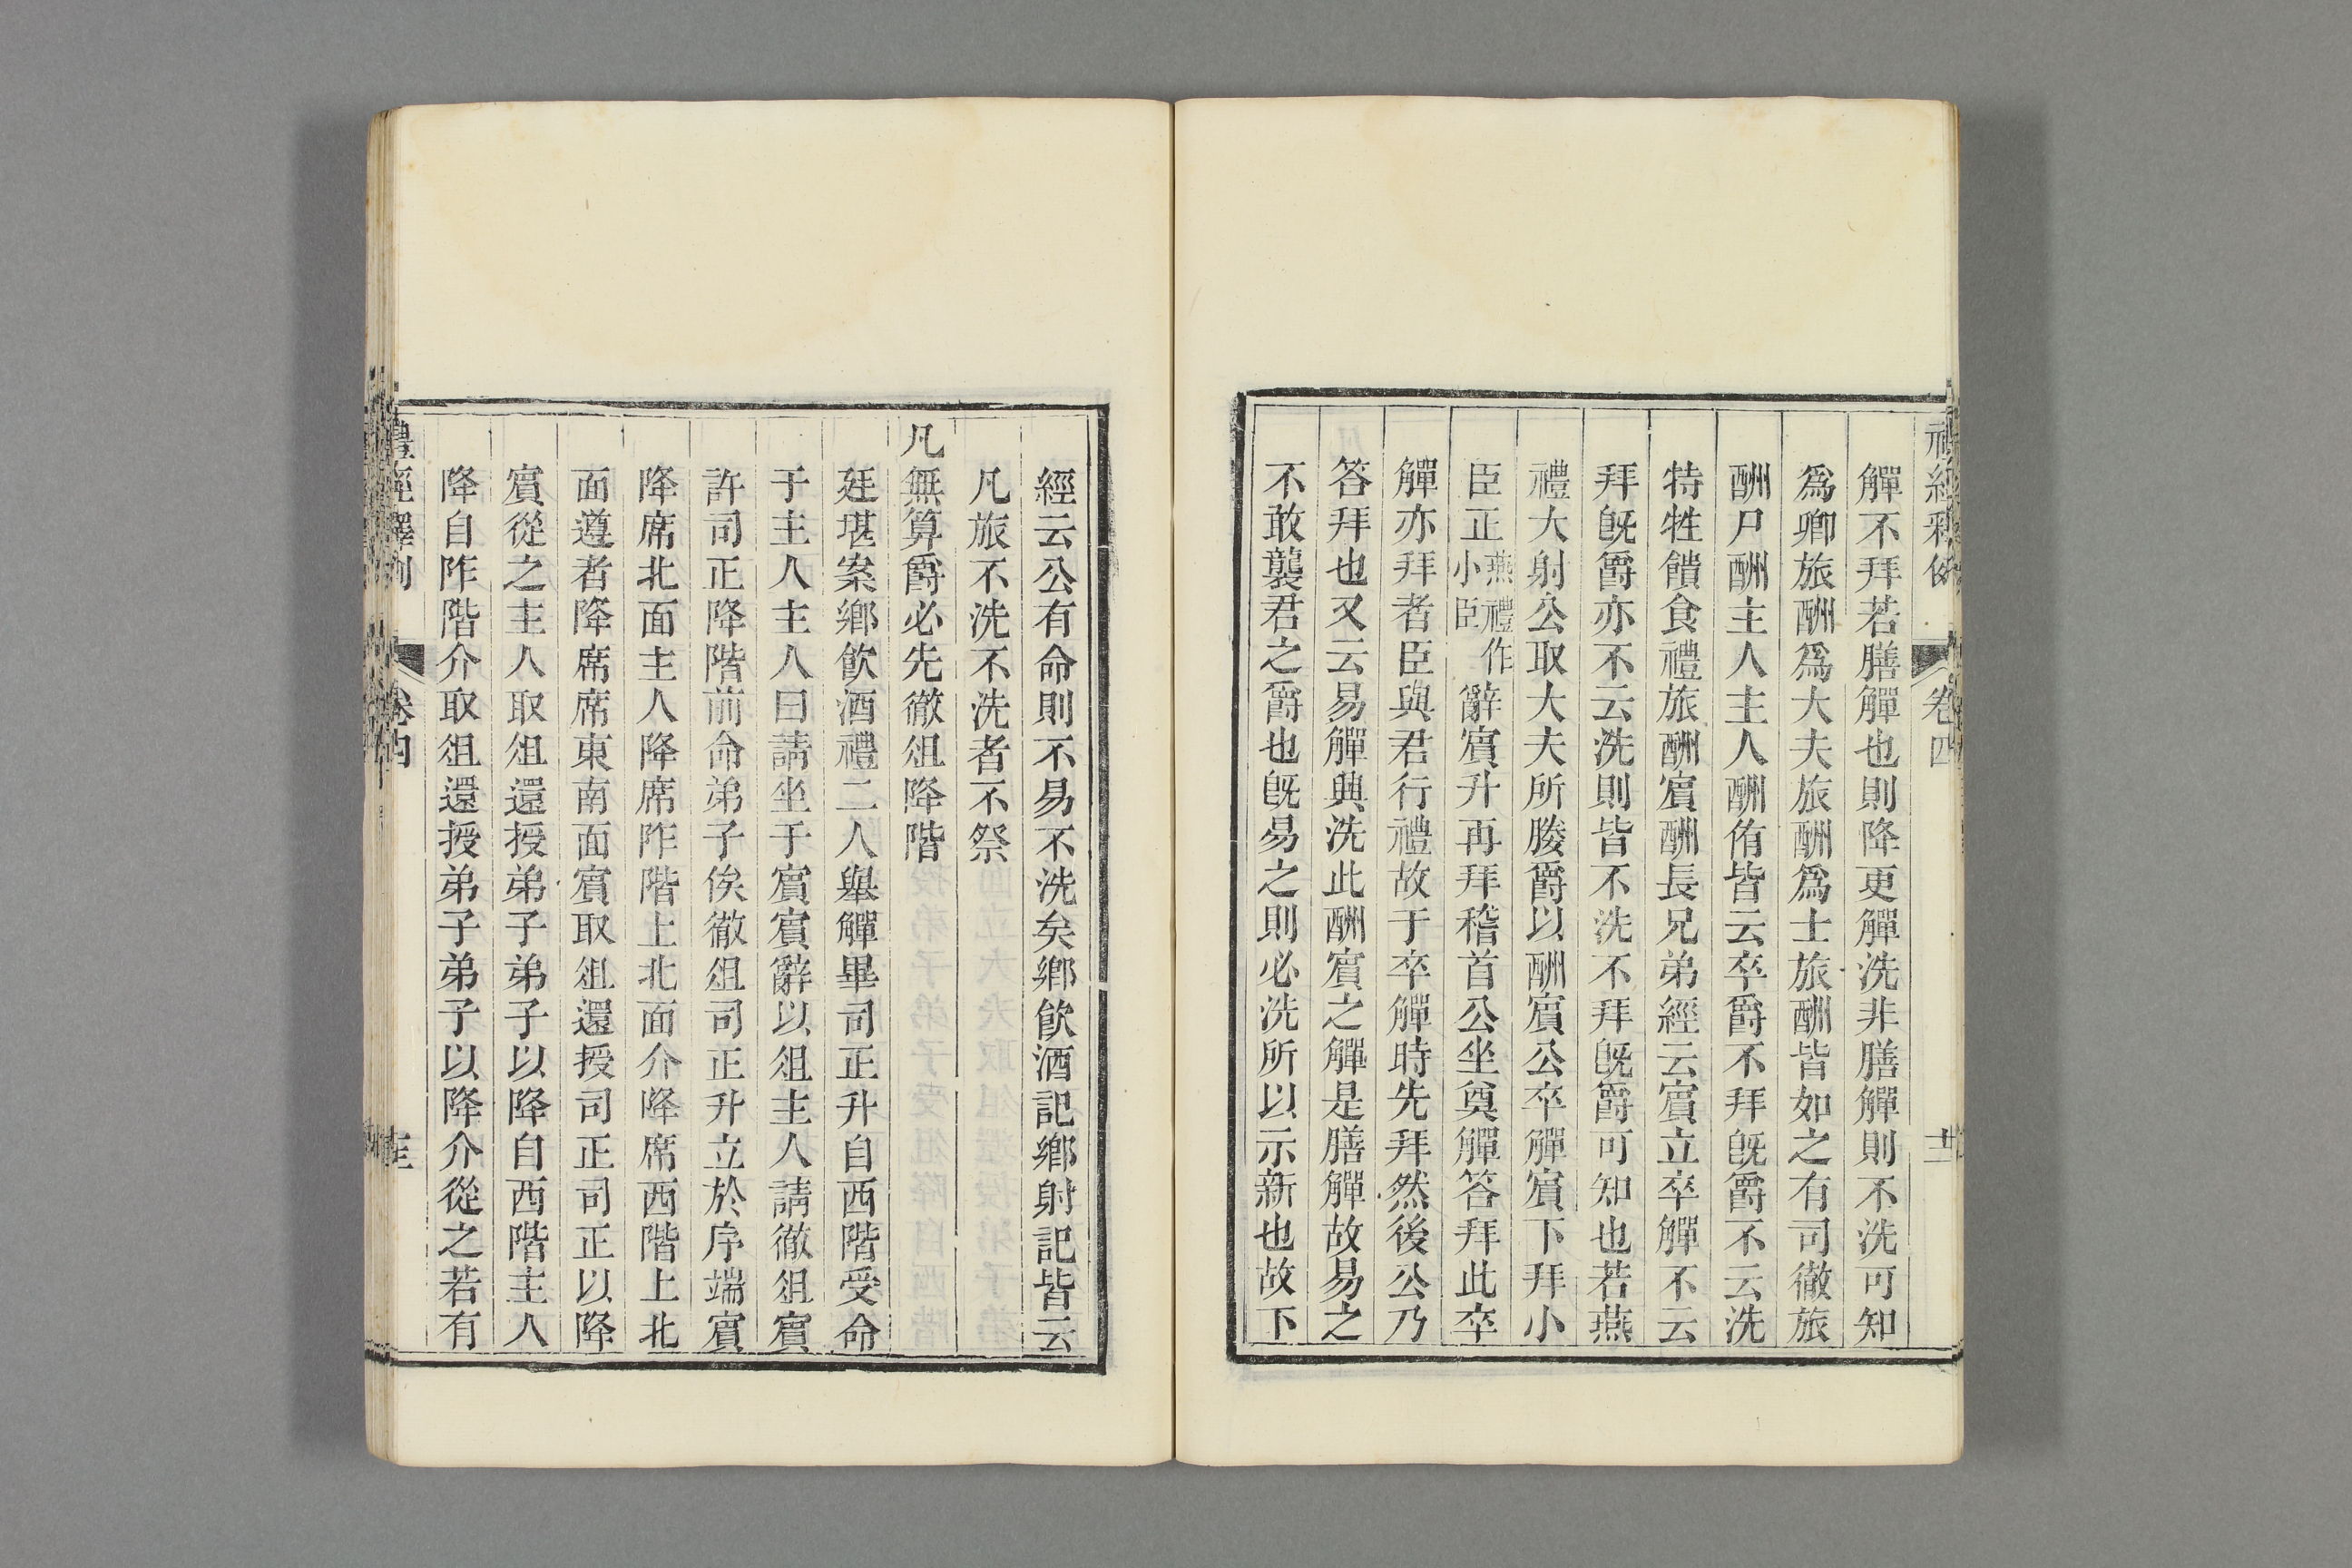 禮經釋例 卷四 十二
觶不拜若膳觶也則降更觶洗非膳觶則不洗可知
爲卿旅酬爲大夫旅酬爲士旅酬皆如之有司徹旅
酬尸酬主人主人酬侑皆云卒爵不拜旣爵不云洗
特牲饋食禮旅酬賔酬長兄弟經云賔立卒觶不云
拜旣爵亦不云洗則皆不洗不拜旣爵可知也若燕
禮大射公取大夫所媵爵以酬賔公卒觶賔下拜小
臣正燕禮作小臣辭賔升再拜稽首公坐奠觶答拜此卒
觶亦拜者臣與君行禮故于卒觶時先拜然後公乃
答拜也又云易觶興洗此酬賔之觶是膳觶故易之
不敢襲君之爵也旣易之則必洗所以示新也故下
經云公有命則不易不洗矣鄉飮酒記鄉射記皆云
凡旅不洗不洗者不祭
凡無算爵必先徹俎降階
廷堪案鄉飮酒禮二人舉觶畢司正升自西階受命
于主人主人曰請坐于賔賔辭以俎主人請徹俎賔
許司正降階前命弟子俟徹俎司正升立於序端賔
降席北面主人降席阼階上北面介降席西階上北
面遵者降席席東南面賔取俎還授司正司正以降
賔從之主人取俎還授弟子弟子以降自西階主人
降自阼階介取俎還授弟子弟子以降介從之若有
禮經釋例 卷四